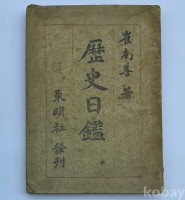 崔南善 著
歷史日鑑
東明社 發刊
kobay